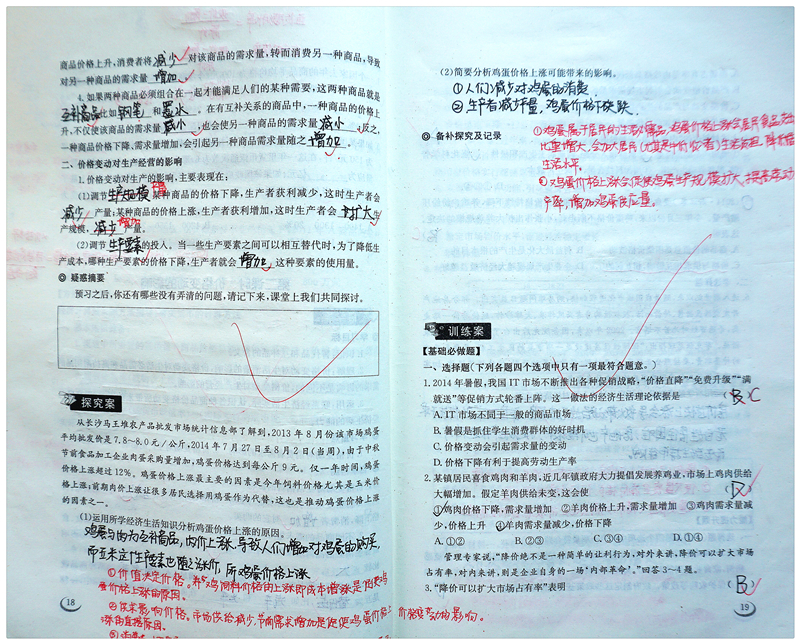 商品价格上升,消费者将 减少 对该商品的需求量,转而消费另一种商品,导致
对另一种商品的需求量 增加 。
4.如果两种商品必须组合在一起才能满足人们的某种需要,这两种商品就是
互补商品,比如 钢笔 和 墨水 。在有互补关系的商品中,一种商品的价格上
升,不仅使该商品的需求量 减少 ,也会使另一种商品的需求量 减少 。反之,
一种商品价格下降,需求量增加,会引起另一种商品需求量随之 增加 。
二、价格变动对生产经营的影响
1.价格变动对生产的影响,主要表现在:
(1)调节 生产规模 。某种商品的价格下降,生产者获利减少,这时生产者会
减少 产量;某种商品的价格上涨,生产者获利增加,这时生产者会 扩大 生
产规模, 增加 产量。
(2)调节 生产要素 的投入。当一些生产要素之间可以相互替代时,为了降低生
产成本,哪种生产要素的价格下降,生产者就会 增加 这种要素的使用量。
◎ 疑惑摘要
预习之后,你还有哪些没有弄清的问题,请记下来,课堂上我们共同探讨。
探究案
从长沙马王堆农产品批发市场统计信息部了解到,2013年8月份该市场鸡蛋
平均批发价是7.8~8.0元/公斤,2014年7月27日至8月2日(当周),由于中秋
节前食品加工企业肉蛋采购量增加,鸡蛋价格达到每公斤9元。仅一年时间,鸡蛋
价格上涨超过12%。鸡蛋价格上涨最主要的因素是今年饲料价格尤其是玉米价
格上涨;前期肉价上涨让很多居民选择用鸡蛋作为代替,这也是推动蛋价格上涨
的因素之一。
(1)运用所学经济生活知识分析鸡蛋价格上涨的原因。
鸡蛋与肉为互补商品,肉价上涨,导致人们增加对鸡蛋的购买,
而玉米这生产要素也随之涨价,所以鸡蛋价格上涨
①价值决定价格。饲料价格的上涨即成本增涨是促使鸡
蛋价格上涨的原因。
②供求影响价格。市场供给减少,节前需求增加是促使鸡蛋价格上
涨的直接原因。
18
(2)简要分析鸡蛋价格上涨可能带来的影响。
①人们减少对鸡蛋的消费
②生产者减少产量,鸡蛋价格下跌。
◎ 备补探究及记录
①鸡蛋属于居民的生活必需品,鸡蛋价格上涨会居民食品支出
比重增大,会加大居民(尤其中低收入者)生活负担,降低
生活水平。
②鸡蛋价格上涨会促使鸡蛋生产规模扩大,提高劳动
率,增加鸡蛋供应量。
训练案
【基础必做题】
一、选择题(下列各题四个选项中只有一项最符合题意。)
1.2014年暑假,我国IT市场不断推出各种促销战略,“价格直降”“免费升级”“满
就送”等促销方式轮番上阵。这一做法的经济生活理论依据是 (B)C
A.IT市场不同于一般的商品市场
B.暑假是抓住学生消费群体的好时机
C.价格变动会引起需求量的变动
D.价格下降有利于提高劳动生产率
2.某镇居民喜食鸡肉和羊肉,近几年镇政府大力提倡发展养鸡业,市场上鸡肉供给
大幅增加。假定羊肉供给未变,这会使
①鸡肉价格下降,需求量增加 ②羊肉价格上升,需求量增加 ③鸡肉需求量减
少,价格上升 ④羊肉需求量减少,价格下降
A.①② B.②③ C.③④ D.①④
管理专家说,“降价绝不是一种简单的让利行为,对外来讲,降价可以扩大市场
占有率,对内来讲,则是企业自身的一场‘内部革命’。”回答3~4题。
3.“降价可以扩大市场占有率”表明 (B)
19